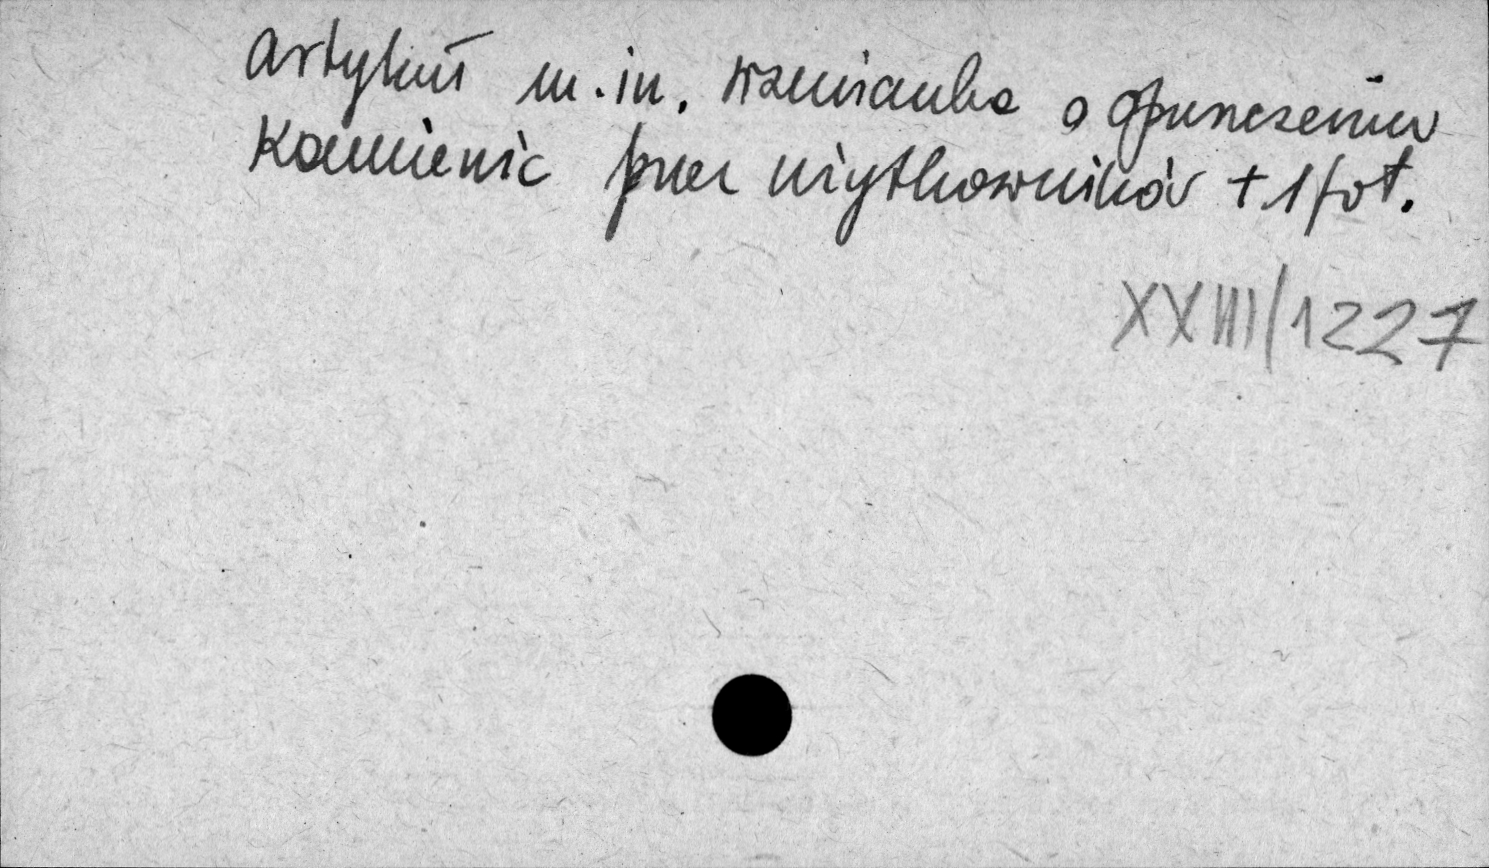 artykuł m.in. wzmianka o opuszczeniu
kamienic przez użytkowników + 1 fot.
XXIII/1227